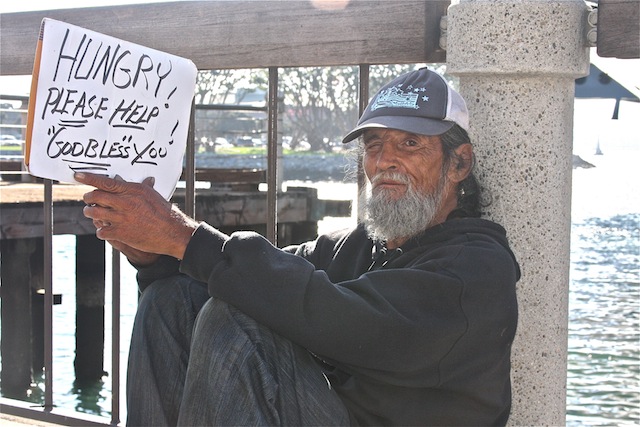 HUNGRY!
PLEASE HELP!
"GOD BLESS" YOU"